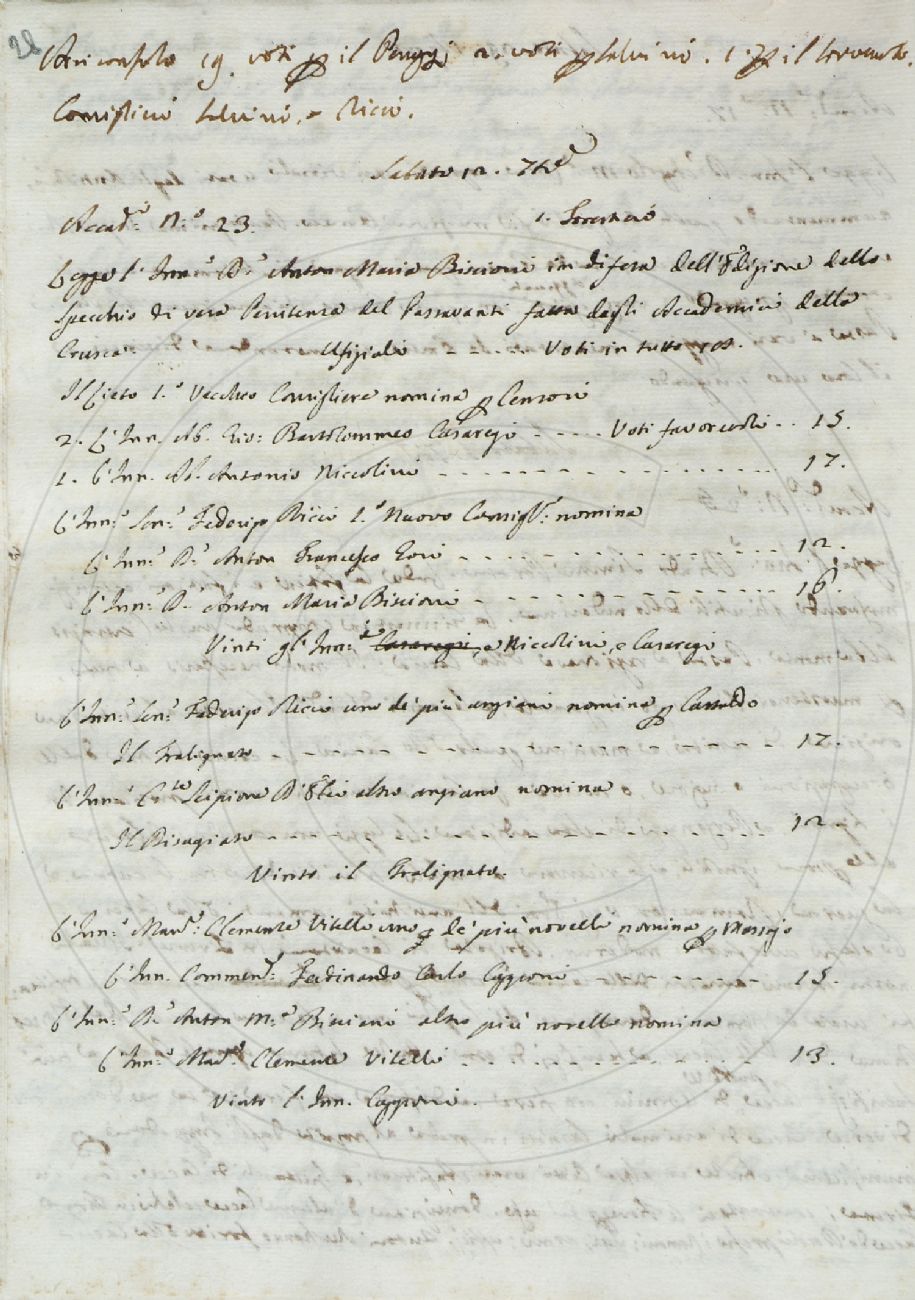 28
Arciconsolo 19. voti p il Puggi 2. voti p Salvini. 1. p il
Consiglieri Salvini, e Ricci.
Sabato 12. 7bre
Accad.a N.o 23.
Legge l' Inn.o D.r Anton Maria Biscioni in difesa dell' Edizione dello
Specchio di vera Penitenza del Passavanti fatta dagli Accademici della
Crusca. Ufiziali - - - - Voti in tutto
Il Lieto 1.o Vecchio Consigliere nomina p Censori
2. L' Inn. Ab. Gio: Bartolommeo Casaregi - - - - Voti favorevoli - - 15.
1. L' Inn. Ab. Antonio Niccolini - - - - - - - - - - 17.
L' Inn.o Sen.r Federigo Ricci 1.o Nuovo Consigl.e nomina
L' Inn.o D.r Anton Francesco Gori - - - - - - - - - - 12.
L' Inn.o D.r Anton Maria Biscioni - - - - - - - - - - 16
Vinti gl' Inn.i Casaregi, e Niccolini, e Casaregi
L' Inn.o Sen.r Federigo Ricci uno de' più anziani nomina p Castaldo
Il Tralignato - - - - - - - - - - 17.
L' Inn.o Scipione altro anziano nomina
Il Disagiato - - - - - - - - - - 12.
Vinto il Tralignato.
L' Inn.o Mar.e Clemente Vitelli uno de' più novelli nomina p Massajo
L' Inn. Commen.r Ferdinando Carlo Capponi - - - - - - 15.
L' Inn.o D.r Anton M.a Biscioni altro più novello nomina
L' Inn.o Mar.e Clemente Vitelli - - - - - - - - 13.
Vinto l' Inn. Capponi.